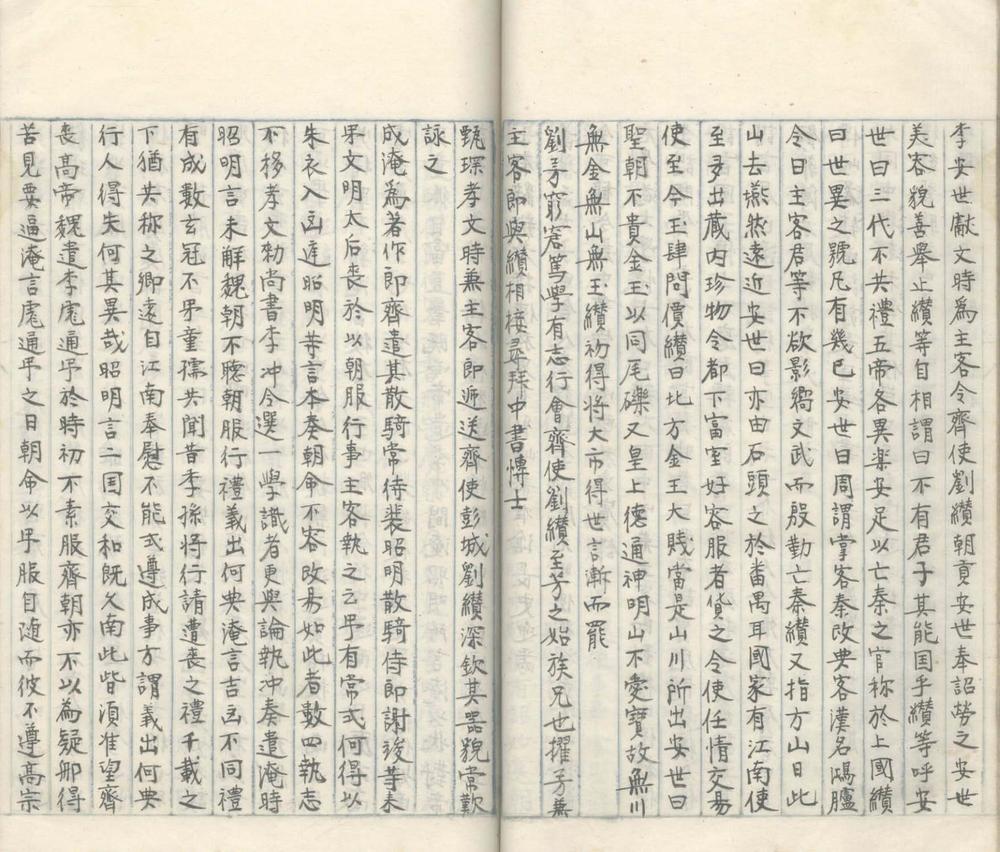 李安世獻文時爲主客令齊使劉纘朝貢安世奉詔勞之安世
美容貌善舉止纘等自相謂曰不有君子其能国乎纘等呼安
世曰三代不共禮五帝各異楽安足以亡秦之官称於上國纘
曰世異之號凡有幾也安世曰周謂掌客秦改典客漢名鴻臚
今日主客君等不欲影響文武而殷勤亡秦纘又指方山日此
山去燕然遠近安世曰亦由石頭之於番禺耳國家有江南使
至多出蔵内珍物令都下富室好容服者貨之令使任情交易
使至今玉肆問價纘曰北方金王大賤當是山川所出安世曰
聖朝不貴金玉以同尾礫又皇上德通神明山不愛寶故無川
無金無山無玉纘初得将大市得世言漸而罷
劉芳窮窘篤學有志行會齊使劉纘至芳之始族兄也擢芳兼
主客即與纘相接尋拜中書博士
甄琛孝文時兼主客即迎送齊使彭城劉纘深欽其器貌常歎
詠之
成淹爲著作即齊遣其散騎常待裴昭明散騎侍即謝竣等来
吊文明太后喪於以朝服行事主客執之云吊有常式何得以
朱衣入凶庭昭明等言本奏朝命不容改易如此者數四執志
不移孝文勑尚書李冲令選一學識者更與論執冲奏遣淹時
昭明言未解魏朝不聴朝服行禮義出何典淹言吉凶不同禮
有成數玄冠不吊童孺共聞昔季孫将行請遭喪之禮千載之
下猶共称之卿遠自江南奉慰不能式遵成事方謂義出何典
行人得失何其異哉昭明言二国交和既久南北皆須准望齊
喪高帝魏遣李彪通吊於時初不素服齊朝亦不以為疑那得
苦見要逼淹言彪通吊之日朝命以吊服自随而彼不遵高宗